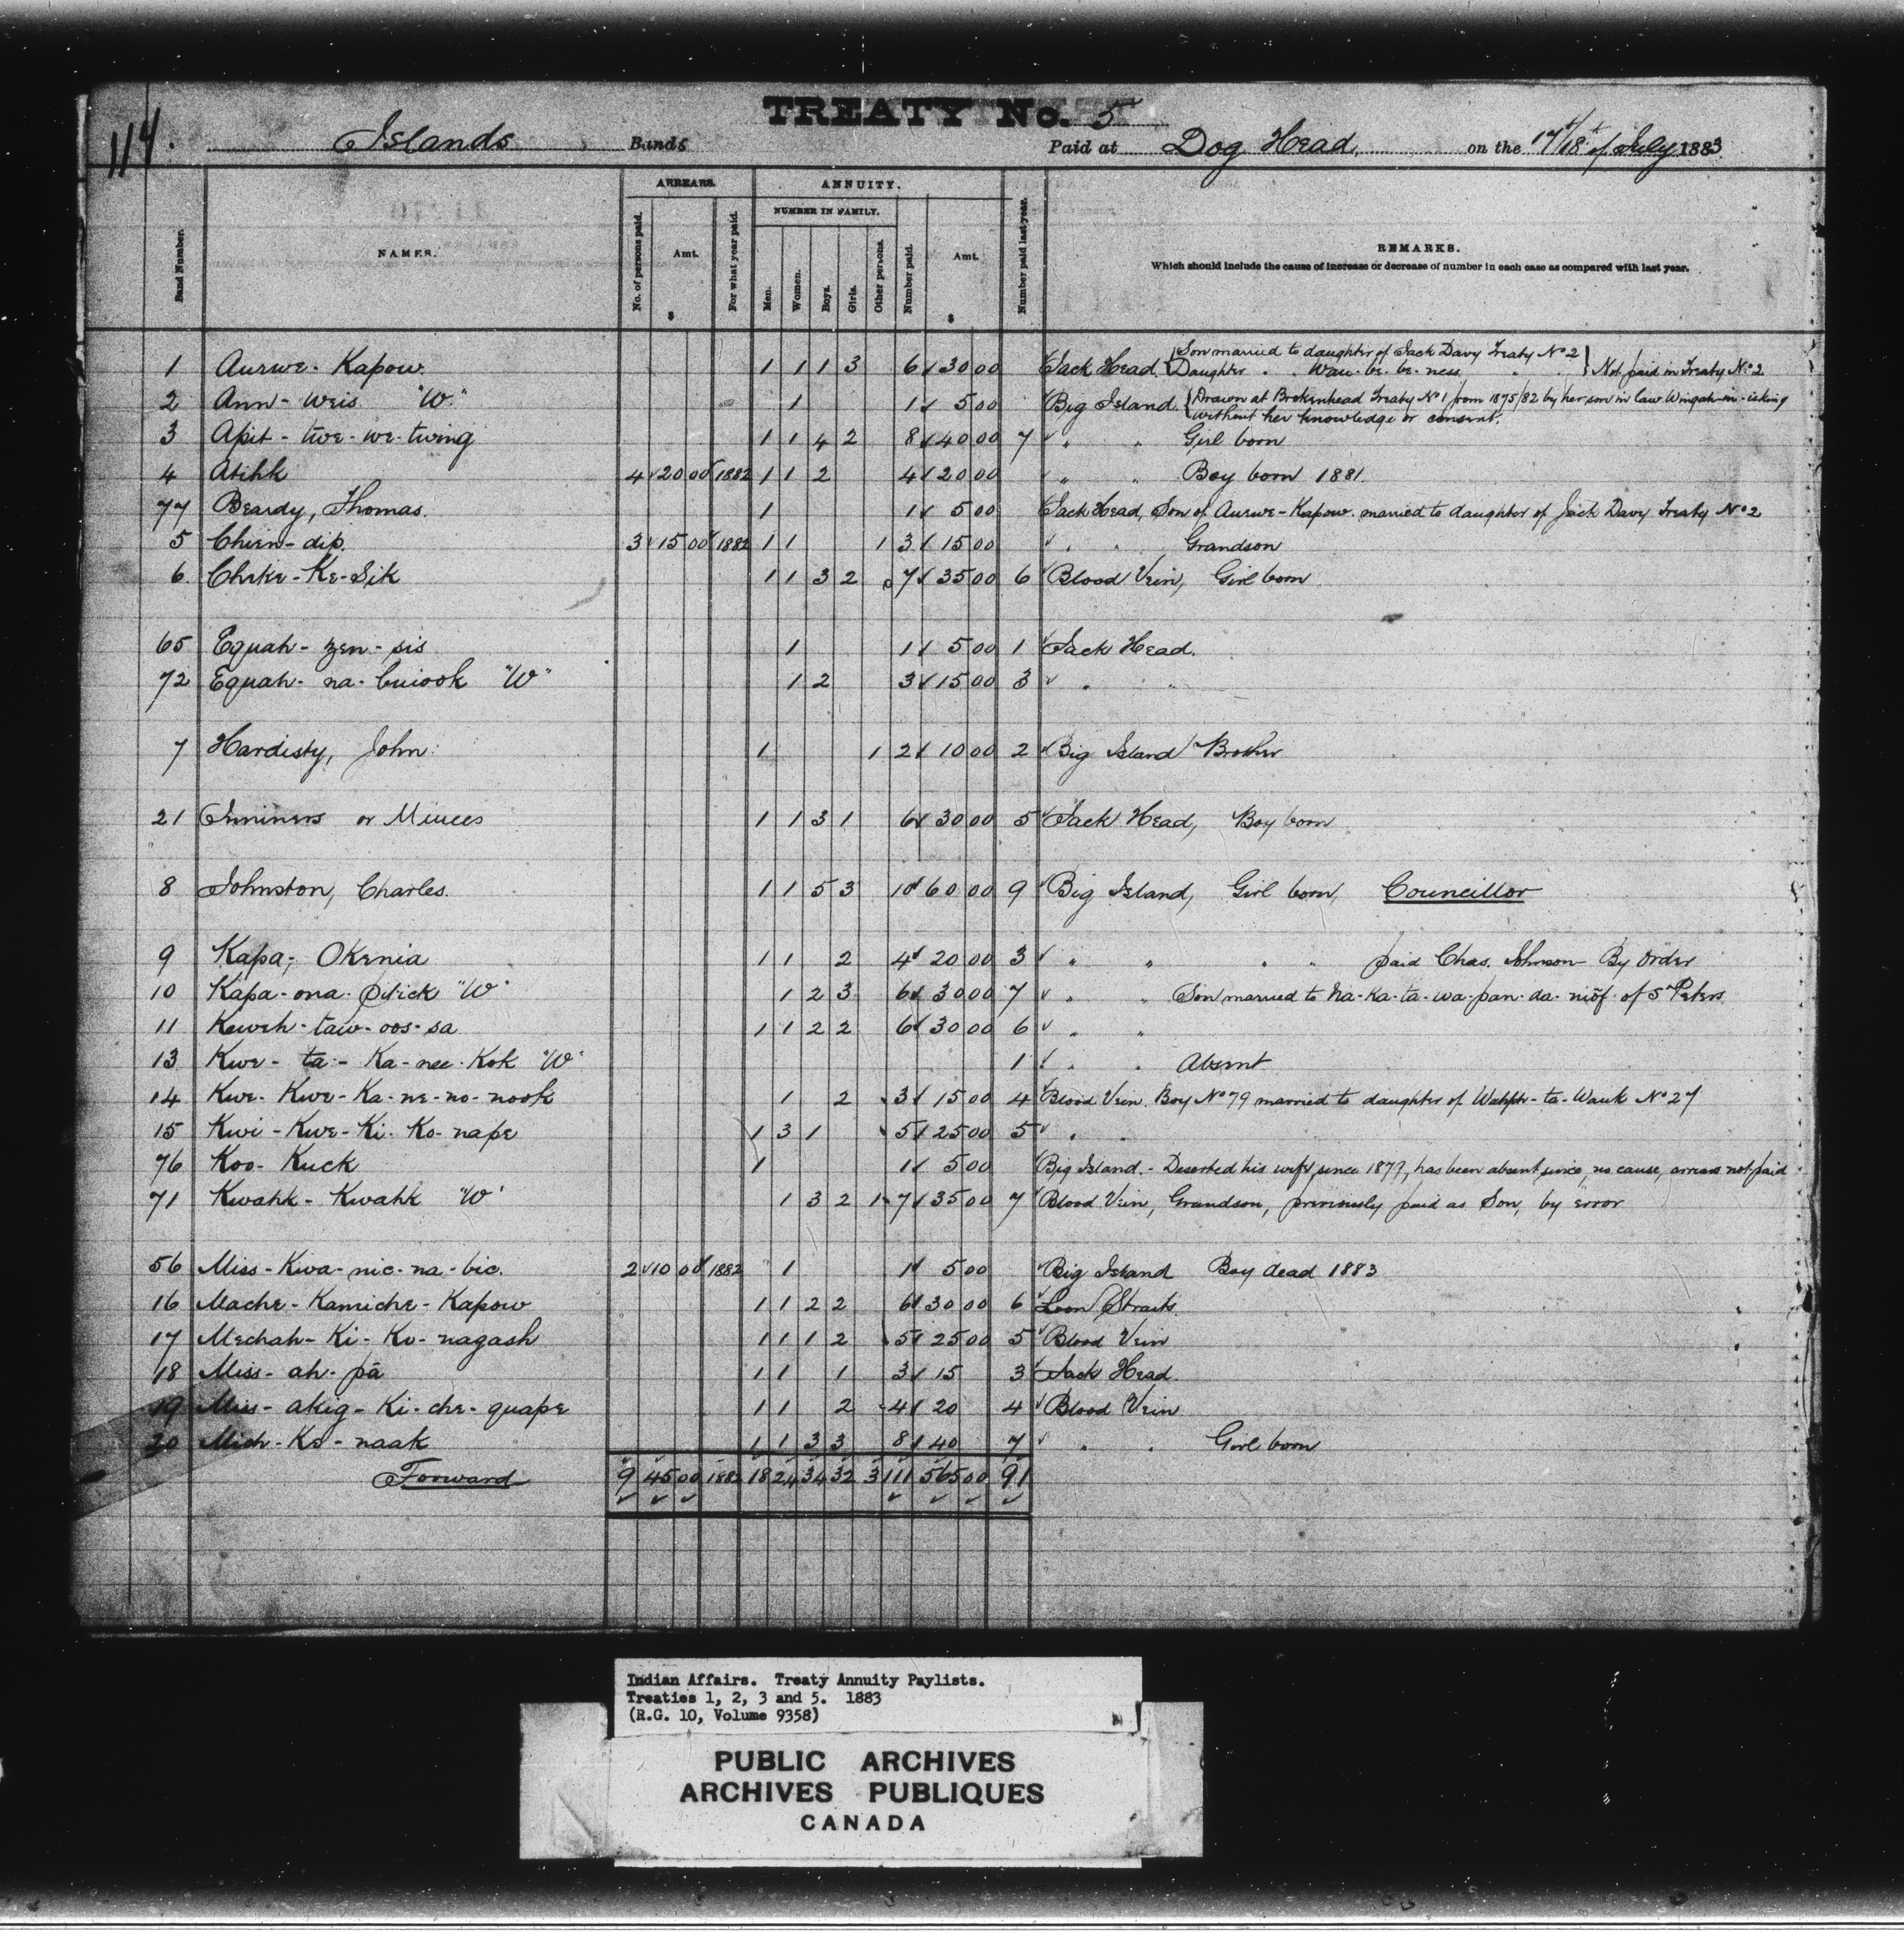 114.
TREATY No. 5
Islands Bands Paid at Dog Head, on the 17th/18th of July 1883
ARREARS. ANNUITY.
NUMBER IN FAMILY.
Band Number. NAMES. No. of persons paid. Amt. $ For what year paid. Men. Women. Boys. Girls. Other persons. Number paid. Amt. $ Number paid last year. REMARKS.
Which should include the cause of increase or decrease of number in each case as compared with last year.
1 Aurwe-Kapow 1 1 1 3 6 30 00 Jack Head {Son married to daughter of Jack Davy Treaty No 2 Daughter " " Waw-be-be-ness " " } Not paid in Treaty No. 2
2 Ann-weis "W." 1 1 5 00 Big Island {Drawn at Brokenhead Treaty No 1 from 1875/82 by her son in law Wingah-in-isking without her knowledge or consent.
3 Apit-twe-we-twing 1 1 4 2 8 40 00 7 " " Girl born
4 Atihk 4 20 00 1882 1 1 2 4 20 00 " " Boy born 1881.
77 Beardy, Thomas. 1 1 5 00 Jack Head, Son of Aurwe-Kapow. married to daughter of Jack Davy Treaty No 2
5 Chien-dip. 3 15 00 1882 1 1 1 3 15 00 " " Grandson
6. Cheke-Ke-Sik 1 1 3 2 7 35 00 6 Blood Vein, Girl born
65 Equah-zen-sis 1 1 5 00 1 Jack Head.
72 Equah-na-buiook "W" 1 2 3 15 00 3 " "
7 Hardisty, John. 1 1 2 10 00 2 Big Island Brother
21 or 1 1 3 1 6 30 00 5 Jack Head, Boy born
8 Johnston, Charles. 1 1 5 3 10 60 00 9 Big Island, Girl born, Councillor
9 Kapa-Okenia 1 1 2 4 20 00 3 " " " " paid Chas. Johnson By Order
10 Kapa-ona-Pitick "W" 1 2 3 6 30 00 7 " " Son married to Na-Ka-ta-wa-pan-da-niof of St Peters.
11 Keweh-taw-oos-sa 1 1 2 2 6 30 00 6 " "
13 Kwe-ta-Ka-nee-Kok "W" 1 " " Absent
14 Kwe-Kwe-Ka-ne-no-nook 1 2 3 15 00 4 Blood Vein. Boy No 79 married to daughter of -ta-Wauk No 27
15 Kwi-Kwe-Ki-Ko-nape 1 3 1 5 25 00 5 " "
76 Koo-Kuck 1 1 5 00 Big Island.- Deserted his wife, since 1879, has been absent since, no cause, arrears not paid
71 Kwahk-Kwahk "W" 1 3 2 1 7 35 00 7 Blood Vein, Grandson, previously paid as Son, by error
56 Miss-Kwa-nic-na-bic. 2 10 00 1882 1 1 5 00 Big Island Boy dead 1883
16 Mache-Kamiche-Kapow 1 1 2 2 6 30 00 6 Loon Straits.
17 Mechah-Ki-Ko-nagash 1 1 1 2 5 25 00 5 Blood Vein
18 Miss-ah-pā 1 1 1 3 15 3 Jack Head.
19 Miss-akig-Ki-che-quape 1 1 2 4 20 4 Blood Vein
20 Mich-Ke-naak 1 1 3 3 8 40 7 " " Girl born
Forward 9 45 00 1882 18 24 34 32 3 111 565 00 91
Indian Affairs. Treaty Annuity Paylists.
Treaties 1, 2, 3 and 5. 1883
(R.G. 10, Volume 9358)
PUBLIC ARCHIVES
ARCHIVES PUBLIQUES
CANADA